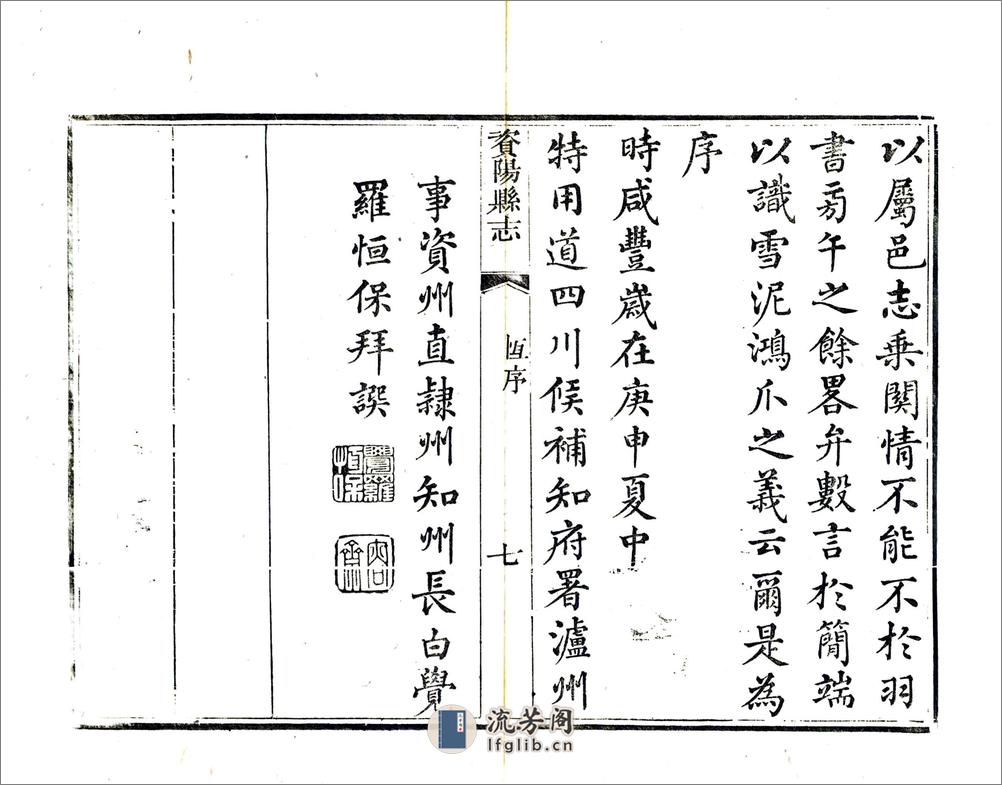 以屬邑志乗関情不能不於羽
書旁午之餘畧弁數言於簡端
以識雪泥鴻爪之義云爾是為
序
時咸豐嵗在庚申夏中
特用道四川候補知府署瀘州
資陽縣志
恒序
七
事資州直隸州知州長白覺
羅恒保拜譔
覺羅恒保
流芳阁
lfglib.cn